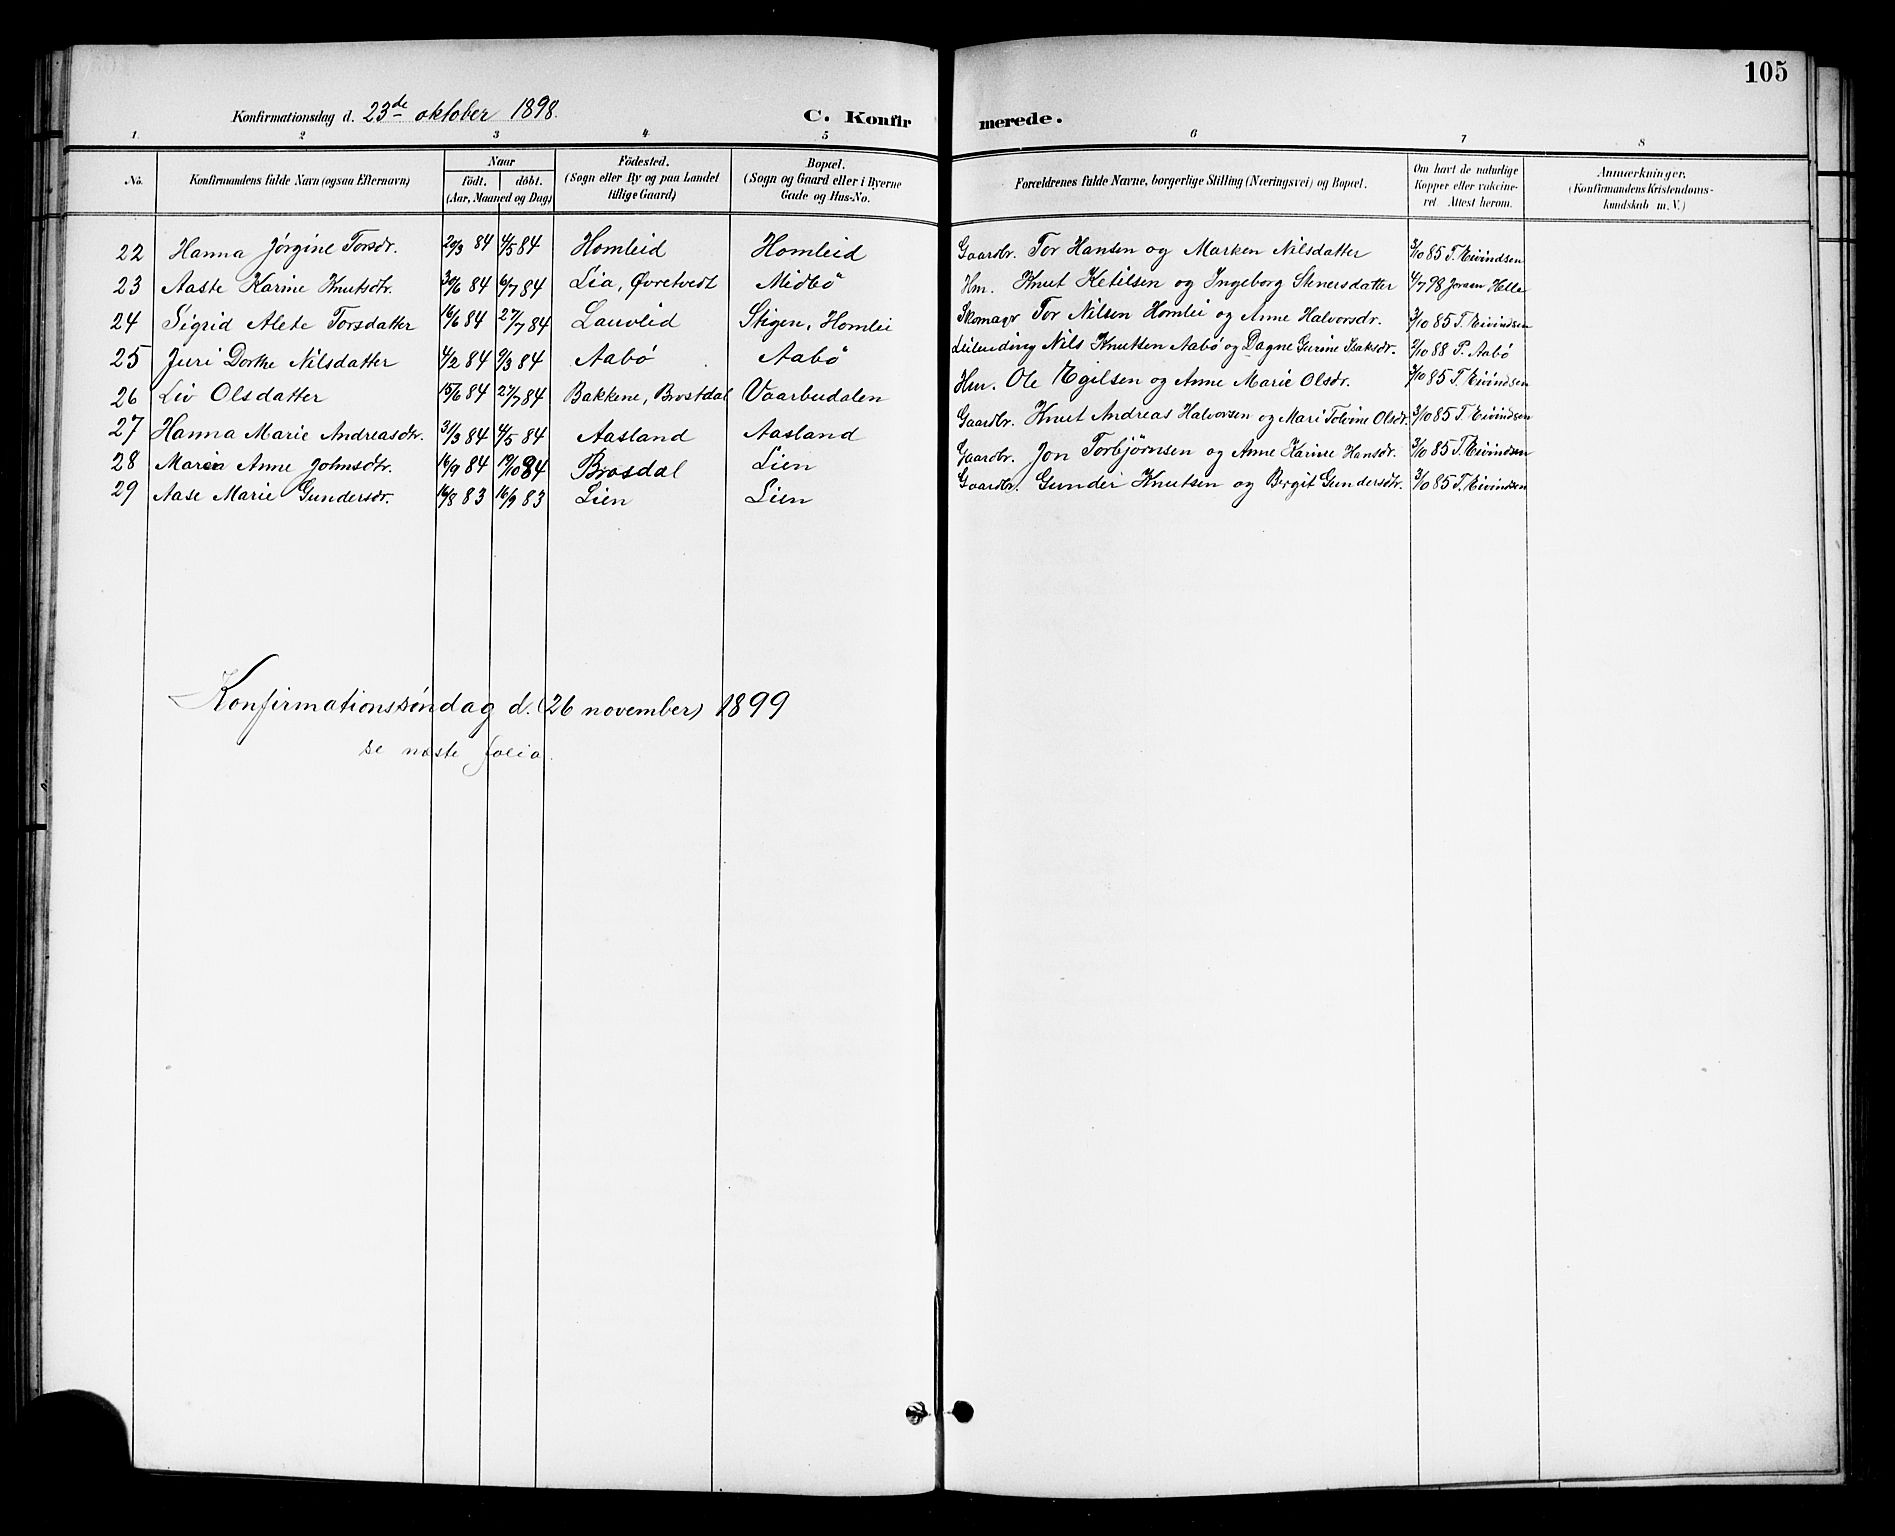 105
Konfirmationsdag d. 23de oktober 1898.
C. Konfirmerede.
1. 2 3 4 5 6 7 8
No. Konfirmandens fulde Navn (ogsaa Efternavn) Naar födt. döbt. (Aar, Maaned og Dag) Födested. (Sogn eller By og paa Landet tillige Gaard) Bopæl. (Sogn og Gaard eller i Byerne Gade og Hus-No. Forældrenes fulde Navne, borgerlige Stilling (Næringsvei) og Bopæl. Om havt de naturlige Kopper eller vakcineret. Attest herom. Anmærkninger. (Konfirmandens Kristendomskundskab m. V.)
22 Hanna Jørgine Torsdr. 20/3 84 4/5 84 Homleid Homleid Gaardbr. Tor Hansen og Marken Nilsdatter 3/10 85 T. Eivindsen
23 Aaste Karine Knutsdtr. 30/6 84 6/7 84 Lia, Øvretvedt Midbö Hm. Knut Ketilsen og Ingeborg Stenersdatter 4/7 98 Jorsen Helle
24 Sigrid Alete Torsdatter 16/6 84 27/7 84 Lauvleid Stigen, Homlei Skomagr Tor Nilsen Homlei og Anne Halvorsdr. 3/10 85 T. Eivindsen
25 Juri Dorthe Nilsdatter 4/2 84 9/3 84 Aabö Aabö Leilending Nils Knutsen Aabö og Dagne Gurine Isaksdr. 7/10 88 P. Aabö
26 Liv Olsdatter 15/6 84 27/7 84 Bakkene, Brostdal Vaarbudalen Hm. Ole Egilsen og Anne Marie Olsdr. 3/10 85 T. Eivindsen
27 Hanna Marie Andreasdtr. 31/3 84 4/5 84 Aasland Aasland Gaardbr. Knut Andreas Halvorsen og Mari Tolvine Olsdr. 3/10 85 T. Eivindsen
28 Maria Anne Johnsdtr. 16/9 84 19/10 84 Brosdal Lien Gaardbr. Jon Torbjørnsen og Anne Karine Hansdr. 3/10 85 T. Eivindsen
29 Aase Marie Gundersdr. 16/8 83 16/9 83 Lien Lien Gaardbr. Gunder Knutsen og Birgit Gundersdtr. 3/10 85 T. Eivindsen
Konfirmationssöndag d. (26 november) 1899
se næste folio.